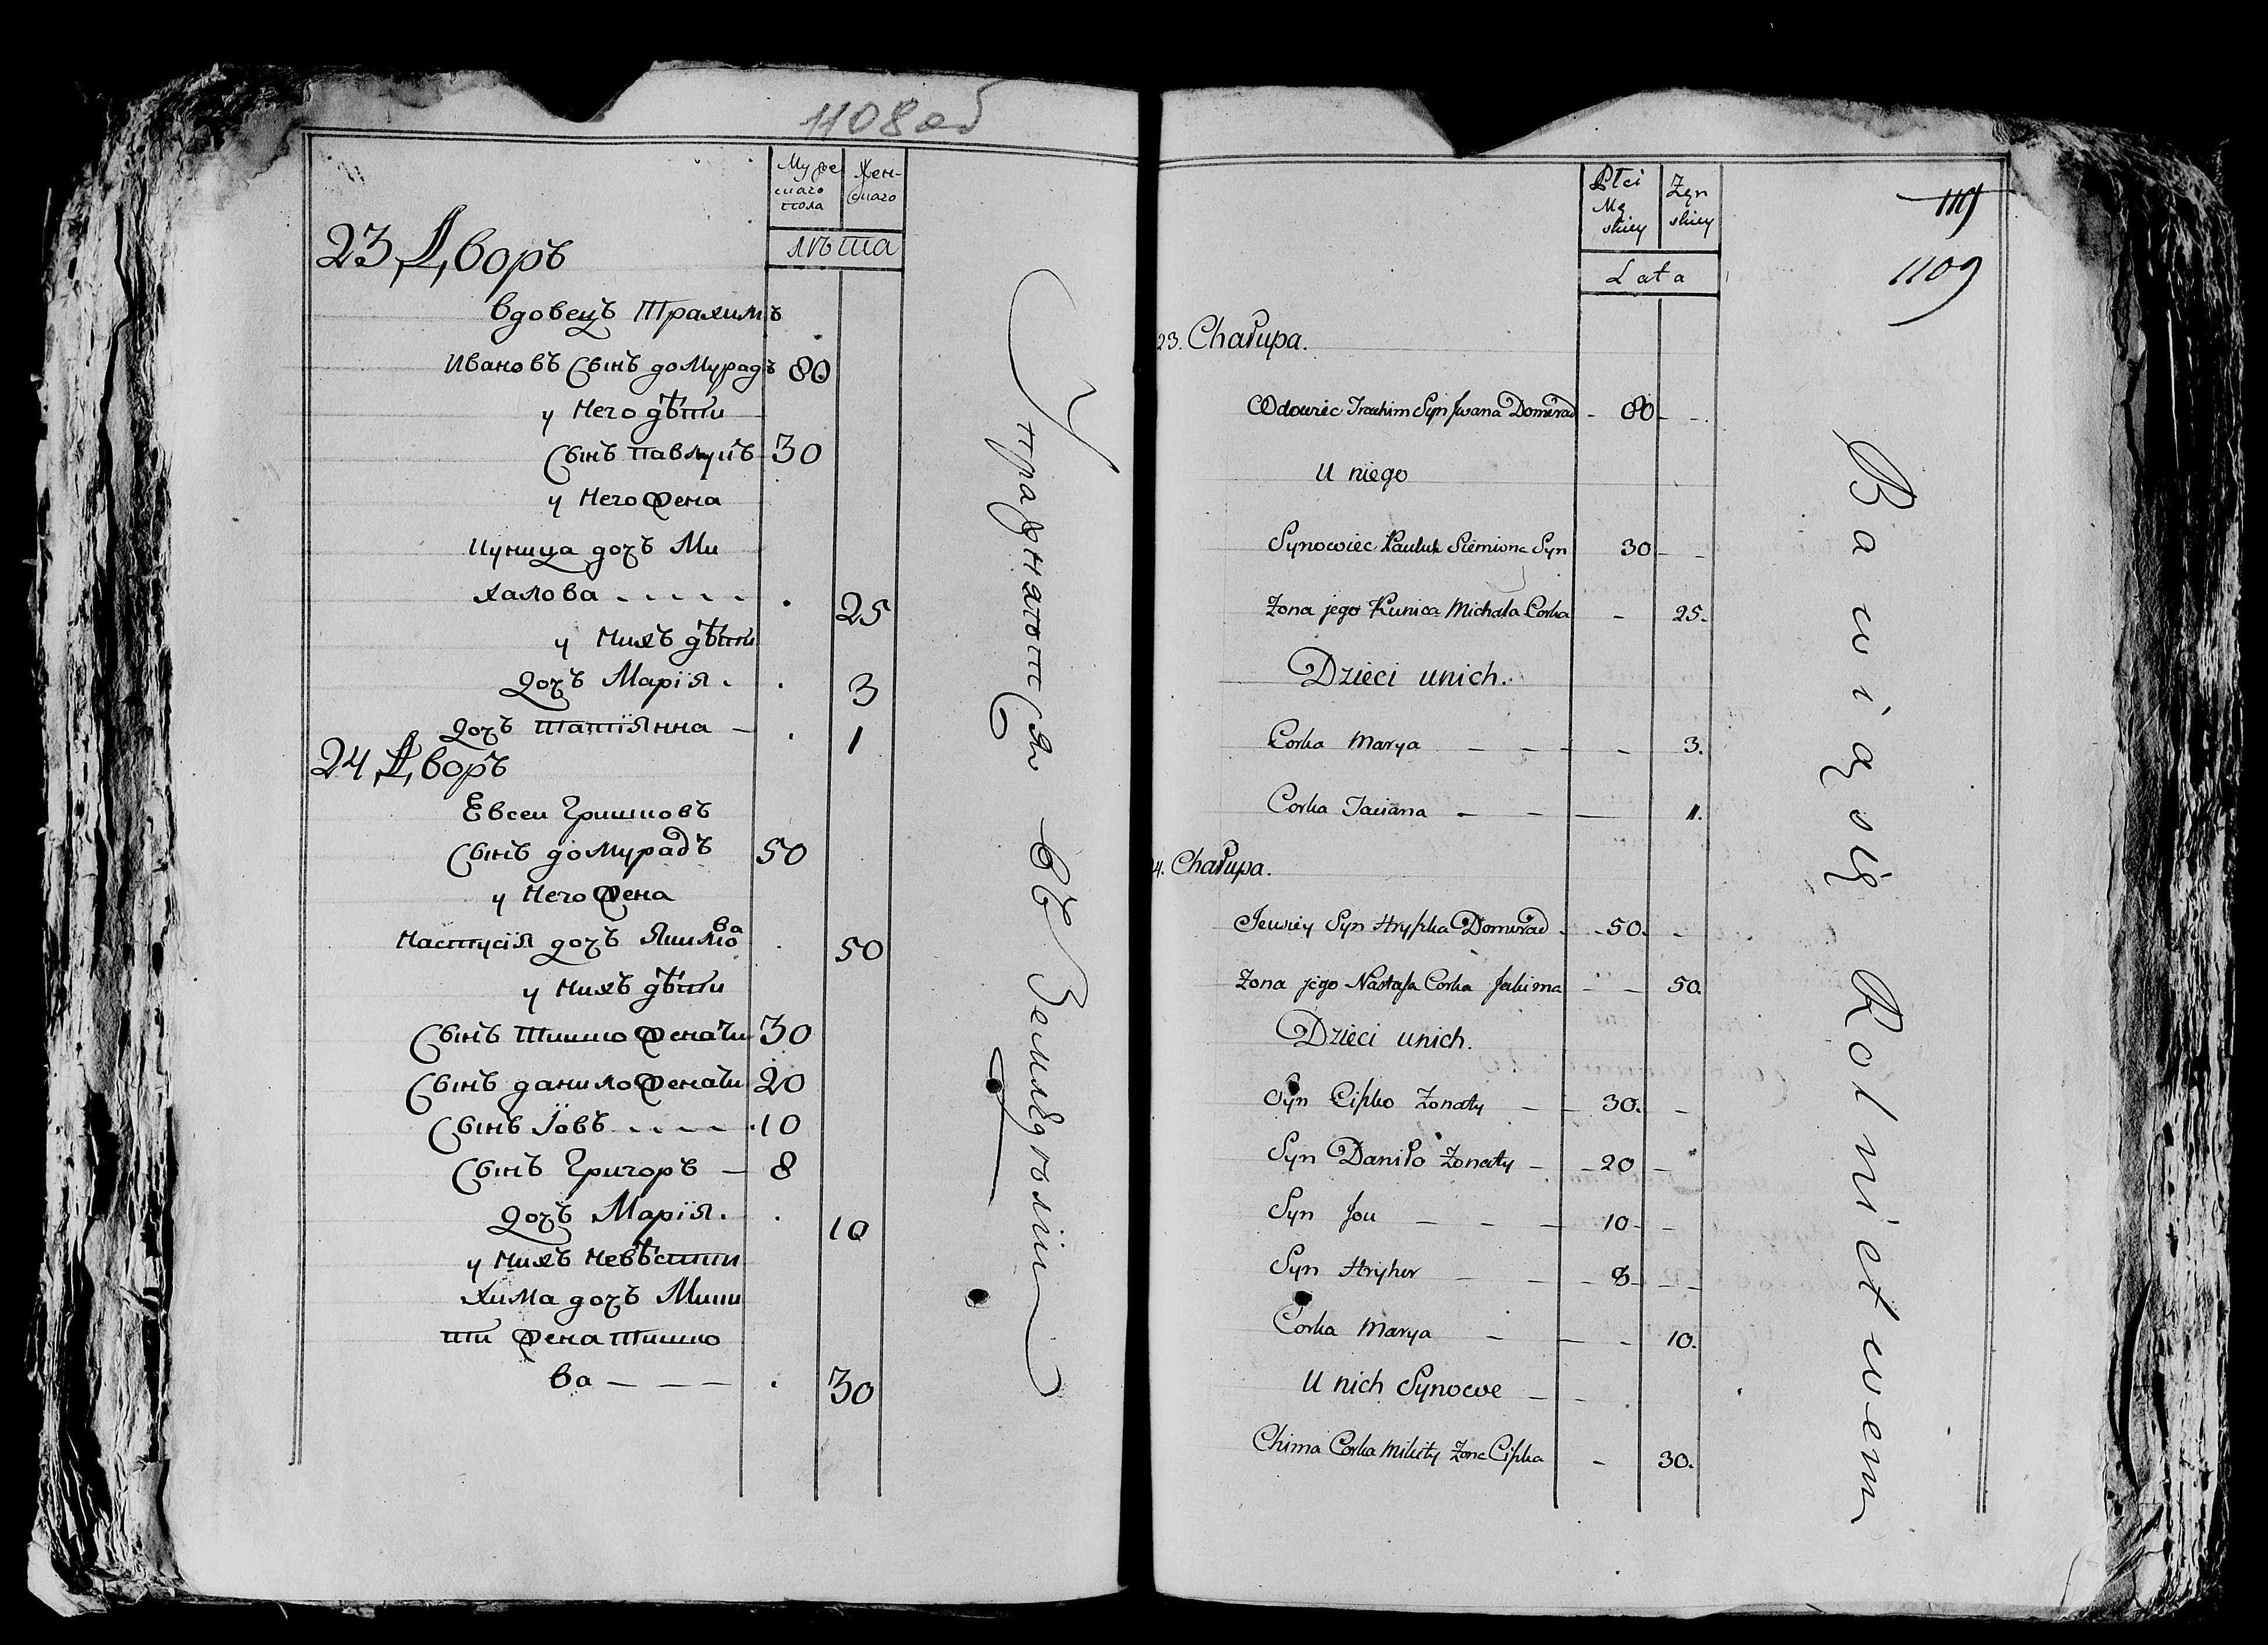 1108 об
Мужескаго пола
Женскаго
лѣта
23 Дворъ
Вдовецъ Трахимъ
Ивановъ Сынъ домурадъ 80
у него дѣти
Сынъ павлукъ 30
у него жена
Куница дочъ Ми
халова - - - - - . 25
у нихъ дѣти
дочъ Марія . . 3
дочъ татіянна - . 1
24 Дворъ
Евсеи Гришковъ
Сынъ домурадъ 50
у него жена
настусія дочъ якимова . 50
у нихъ дѣти
Сынъ тишко женатъ 30
Сынъ данило женатъ 20
Сынъ Іовъ - - - - . 10
Сынъ Григоръ - 8
дочъ Марія . . 10
у нихъ невѣстки
Хима дочъ Мики
ти жена тишко
ва - - - - . 30
Упражняются въ Земледѣліи
Płci Mę skiey
Żęn skiey
Lata
1109
23. Chałupa.
Wdowiec Trachim Syn Jwana Domurad - 80 - -
U niego
Synowiec Pauluk Siemiona Syn 30 - -
Żona jego Kunica Michała Corka - 25.
Dzieci unich.
Corka Marya - - - - 3.
Corka Taciana - - - 1.
4. Chałupa.
Jewsiey Syn Hryszka Domurad - - 50. -
Żona jego Nastasa Corka Jakima - - 50.
Dzieci unich.
Syn Ciszko Żonaty - - 30. -
Syn Daniło Żonaty - - 20 -
Syn Jou - - - 10 - -
Syn Hryhor - - - 8 - -
Corka Marya - - - 10.
U nich Synowe - -
Chima Corka Mikity Żona Ciszka - 30.
Bawią się Rolnictwem